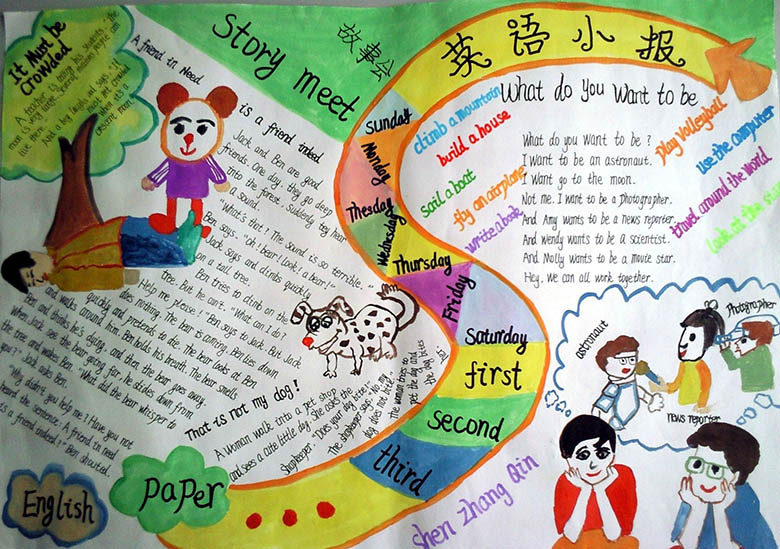 It Must be
Crowded
A teacher is telling his students: "The
moon is very large. Several millions people can
live there."
And a boy laughs and says: "It
must get crowded
when it's a
crescent moon."
Story meet
故事会
英语小报
A friend in need
is a friend indeed
Jack and Ben are good
friends. One day, they go deep
into the forest. Suddenly they hear
a sound.
"What's that? The sound is so terrible."
Ben says. "Oh! Bear! Look! a bear!"
Jack says and climbs quickly
on a tall tree.
Ben tries to climb on its
tree. But he can't. "What can I do?
Help me please!" Ben says to Jack. But Jack
does nothing. The bear is coming. Ben lies down
quickly and pretends to die. The bear looks at Ben
and walks around him. Ben holds his breath. The bear smells
Ben and thinks he's dying. and then the bear goes away.
When Jack see the bear going far, he slides down from
the tree and makes Ben up. "What did the bear whisper to
you?" Jack asks Ben.
"Why didn't you help me! Have you not
heard the sentence: A friend in need
is a friend indeed?" Ben shouted.
That is not my dog!
A woman walk into a pet shop
and sees a cute little dog. She asks the
shopkeeper, "Does your dog bite?"
The shopkeeper says: "No, my
dog does not bite."
The woman tries to
pet the dog and
the dog bites
Sunday
Monday
Thesday
Wednesday
Thursday
Friday
Saturday
first
second
third
climb a mountain
build a house
sail a boat
fly an airplane
write a book
What do you want to be
What do you want to be?
I want to be an astronaut.
I want go to the moon.
Not me. I want to be a photographer.
And Amy wants to be a news reporter.
And wendy wants to be a scientist.
And Molly wants to be a movie star.
Hey, we can all work together.
play volleyball
use the computer
travel around the world
look at the
astronaut
Photographer
news reporter
English
paper
shen zhang Qin